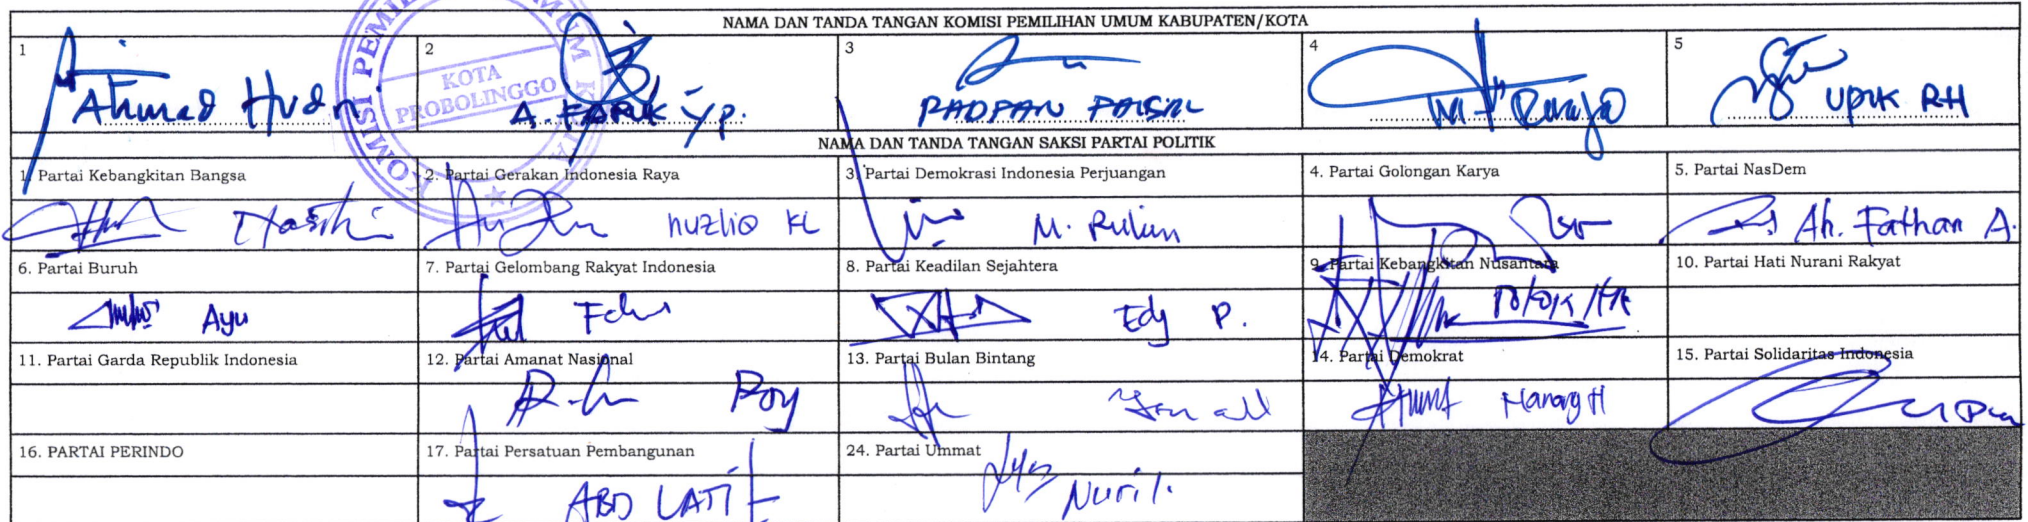 NAMA DAN TANDA TANGAN KOMISI PEMILIHAN UMUM KABUPATEN/KOTA
1 2 3 4 5
KOTA
PROBOLINGGO
Ahmad Hudri A. FARUK Y.P. RADFAN FAISAL UPIK RH
NAMA DAN TANDA TANGAN SAKSI PARTAI POLITIK
1. Partai Kebangkitan Bangsa 2. Partai Gerakan Indonesia Raya 3. Partai Demokrasi Indonesia Perjuangan 4. Partai Golongan Karya 5. Partai NasDem
M. Rulim Ah. Fathan A.
6. Partai Buruh 7. Partai Gelombang Rakyat Indonesia 8. Partai Keadilan Sejahtera 9. Partai Kebangkitan Nusantara 10. Partai Hati Nurani Rakyat
Ayu Edy P.
11. Partai Garda Republik Indonesia 12. Partai Amanat Nasional 13. Partai Bulan Bintang 14. Partai Demokrat 15. Partai Solidaritas Indonesia
Roy Nanang H
16. PARTAI PERINDO 17. Partai Persatuan Pembangunan 24. Partai Ummat
ABD LATIF